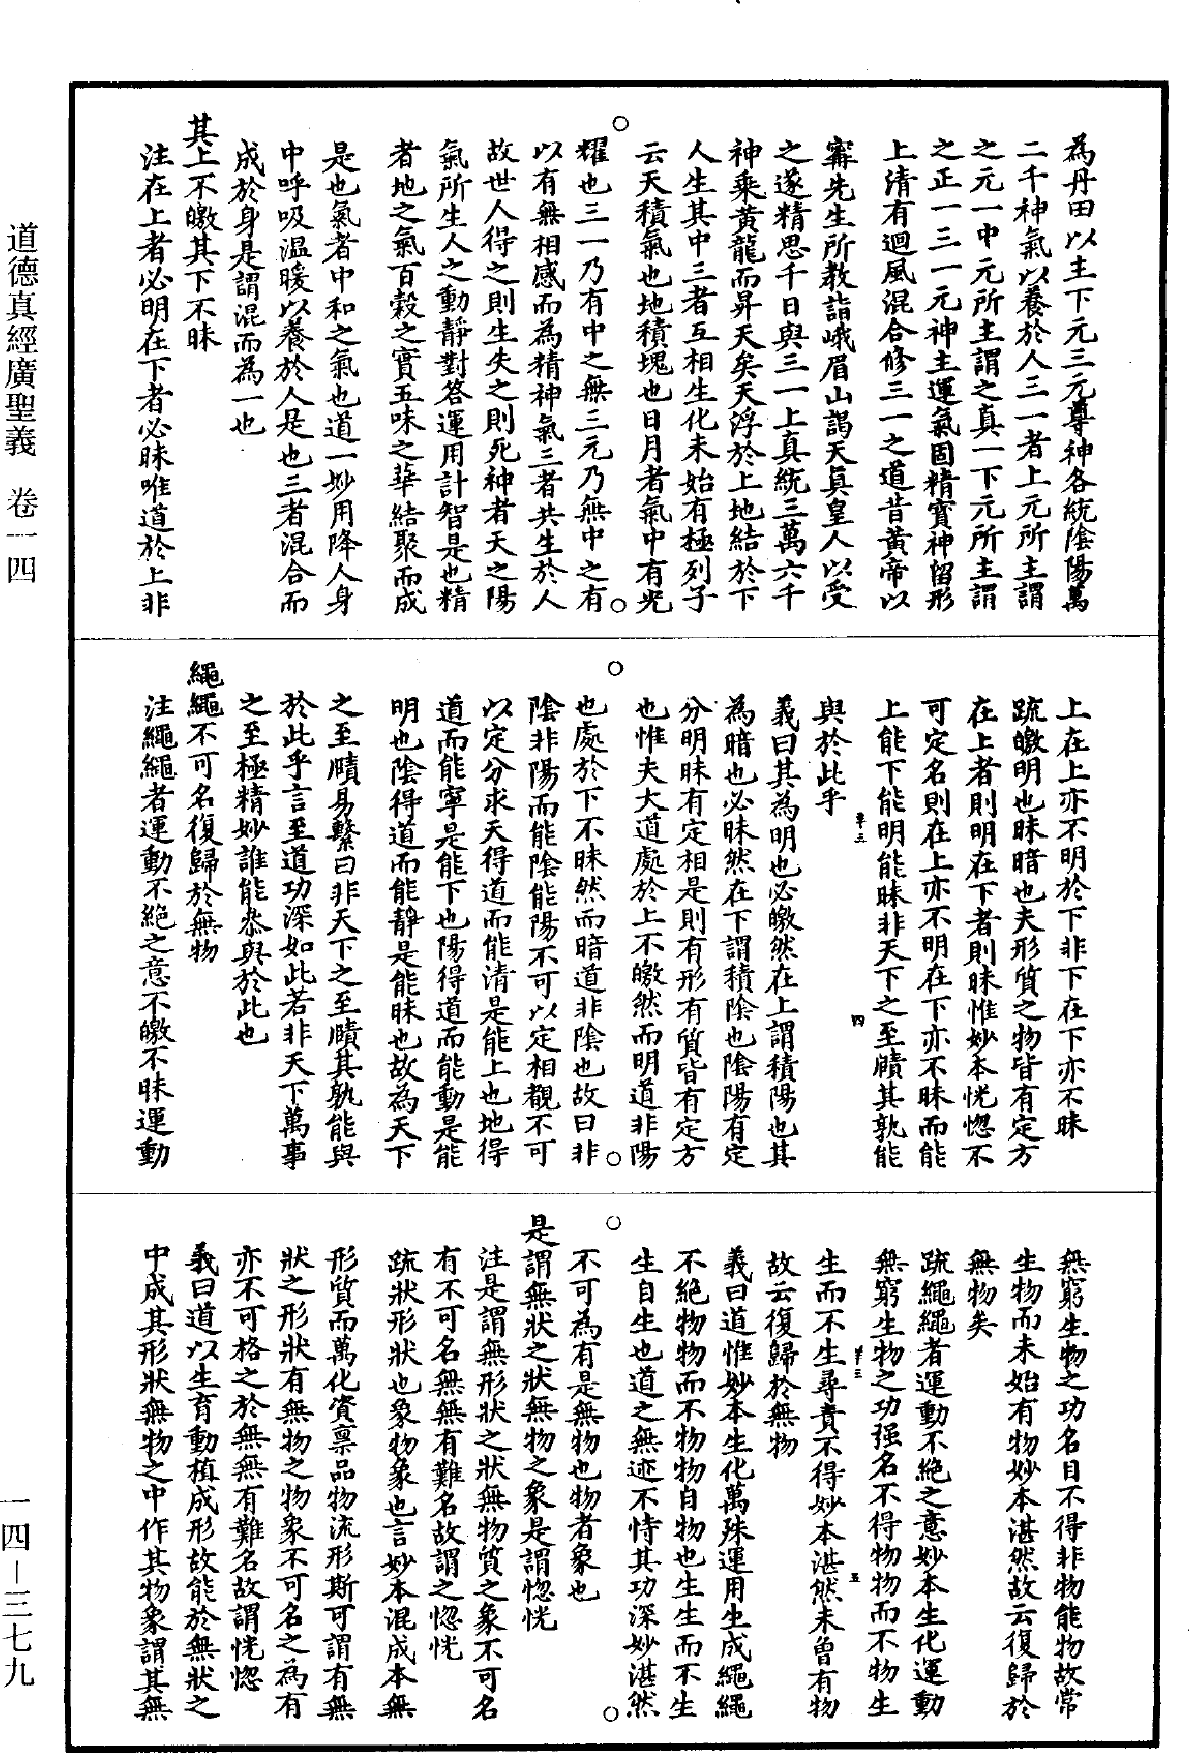 為丹田以主下元三元尊神各統陰陽萬
二千神氣以養於人三一者上元所主謂
之元一中元所主謂之真一下元所主謂
之正一三一元神主運氣固精寶神留形
上清有迴風混合修三一之道昔黃帝以
甯先生所教詣峨眉山謁天真皇人以受
之遂精思千日與三一上真統三萬六千
神乘黃龍而昇天矣天浮於上地結於下
人生其中三者互相生化未始有極列子
云天積氣也地積塊也日月者氣中有光
耀也三一乃有中之無三元乃無中之有
以有無相感而為精神氣三者共生於人
故世人得之則生失之則死神者天之陽
氣所生人之動靜對答運用計智是也精
者地之氣百穀之實五味之華結聚而成
是也氣者中和之氣也道一妙用降人身
中呼吸溫暖以養於人是也三者混合而
成於身是謂混而為一也
其上不皦其下不昧
注在上者必明在下者必昧唯道於上非
上在上亦不明於下非下在下亦不昧
疏皦明也昧暗也夫形質之物皆有定方
在上者則明在下者則昧惟妙本恍惚不
可定名則在上亦不明在下亦不昧而能
上能下能明能昧非天下之至賾其孰能
與於此乎
義曰其為明也必皦然在上謂積陽也其
為暗也必昧然在下謂積陰也陰陽有定
分明昧有定相是則有形有質皆有定方
也惟夫大道處於上不皦然而明道非陽
也處於下不昧然而暗道非陰也故曰非
陰非陽而能陰能陽不可以定相覩不可
以定分求天得道而能清是能上也地得
道而能寧是能下也陽得道而能動是能
明也陰得道而能靜是能昧也故為天下
之至賾易繫曰非天下之至賾其孰能與
於此乎言至道功深如此若非天下萬事
之至極精妙誰能叅與於此也
繩繩不可名復歸於無物
注繩繩者運動不絕之意不皦不昧運動
無窮生物之功名目不得非物能物故常
生物而未始有物妙本湛然故云復歸於
無物矣
疏繩繩者運動不絕之意妙本生化運動
無窮生物之功强名不得物物而不物生
生而不生尋責不得妙本湛然未曾有物
故云復歸於無物
義曰道惟妙本生化萬殊運用生成繩繩
不絕物物而不物物自物也生生而不生
生自生也道之無迹不恃其功深妙湛然
不可為有是無物也物者象也
是謂無狀之狀無物之象是謂惚恍
注是謂無形狀之狀無物質之象不可名
有不可名無無有難名故謂之惚恍
疏狀形狀也象物象也言妙本混成本無
形質而萬化資稟品物流形斯可謂有無
狀之形狀有無物之物象不可名之為有
亦不可格之於無無有難名故謂恍惚
義曰道以生育動植成形故能於無狀之
中成其形狀無物之中作其物象謂其無
道德真經廣聖義 卷一四
一四—三七九